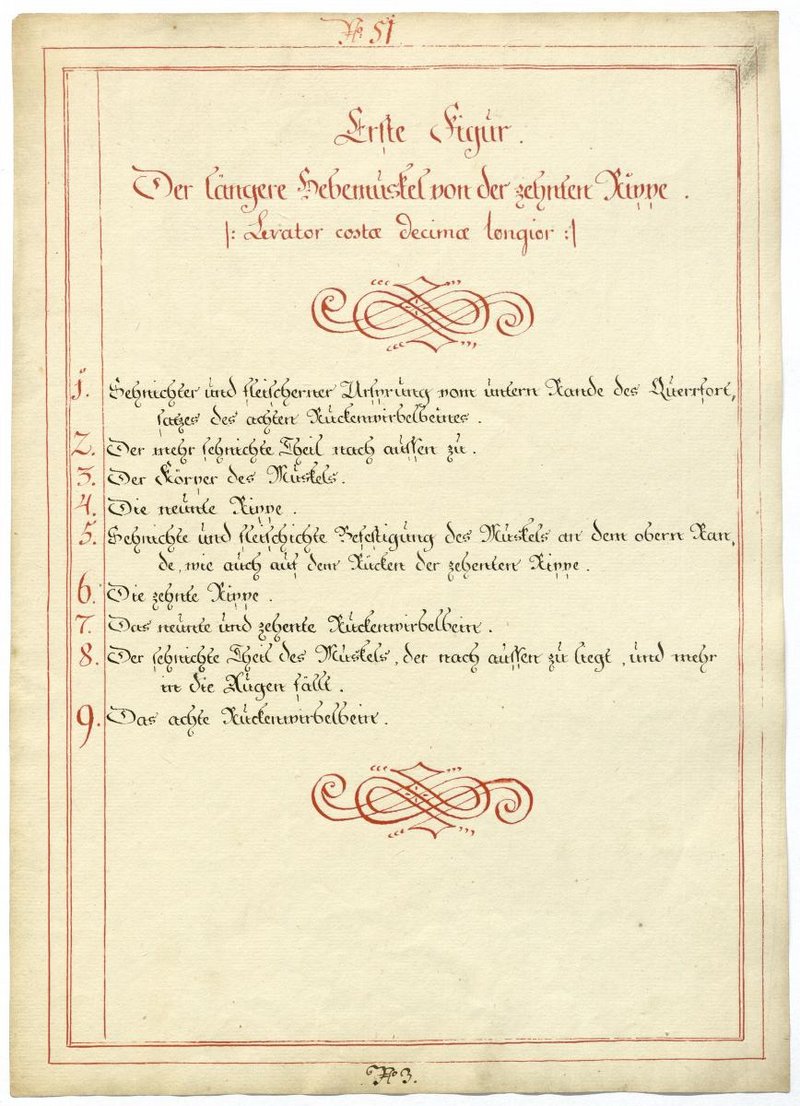 No. 51
Erste Figur.
Der längere Hebemuskel von der zehnten Rippe.
|: Levator costæ decimæ longior :|
1. Sehnichter und fleischerner Ursprung vom untern Rande des Querrfort,
satzes des achten Ruckenwirbelbeines.
2. Der mehr sehnichte Theil nach aussen zu.
3. Der Körper des Muskels.
4. Die neunte Rippe.
5. Sehnichte und fleischichte Befestigung des Muskels an dem obern Ran,
de, wie auch auf dem Rücken der zehenten Rippe.
6. Die zehnte Rippe.
7. Das neunte und zehente Ruckenwirbelbein.
8. Der sehnichte Theil des Muskels, der nach aussen zu liegt, und mehr
in die Augen fällt.
9. Das achte Ruckenwirbelbein.
No 3.